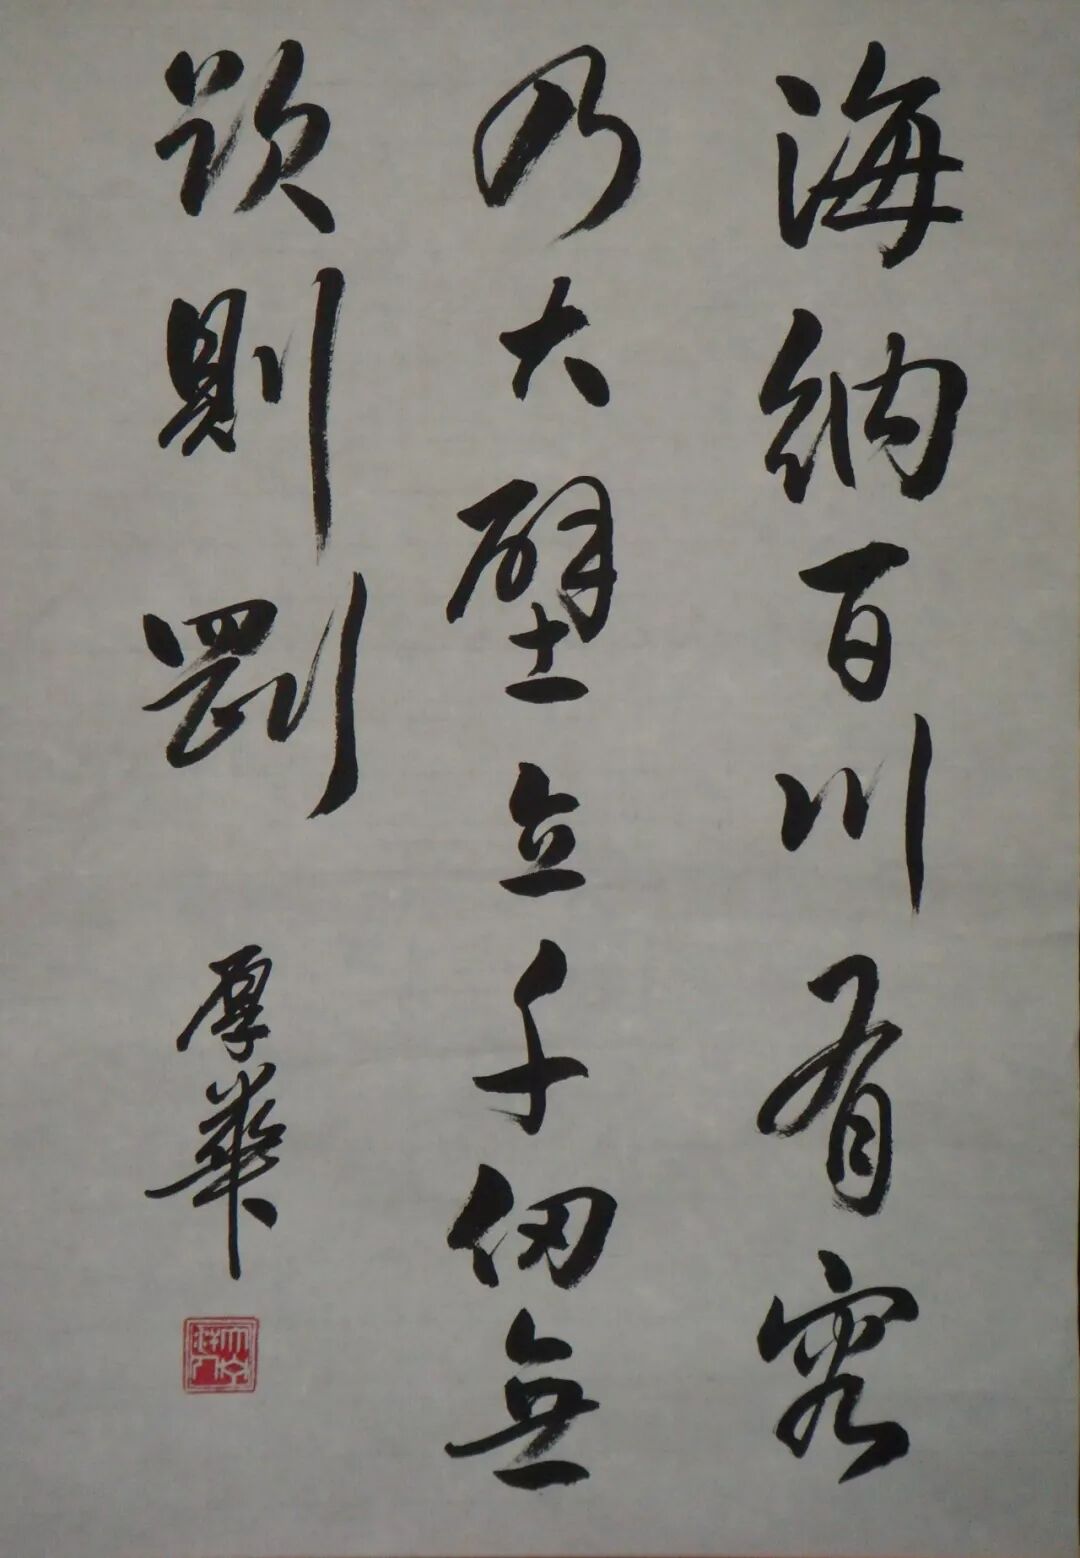 海納百川有容
乃大壁立千仞無
欲則剛
厚華